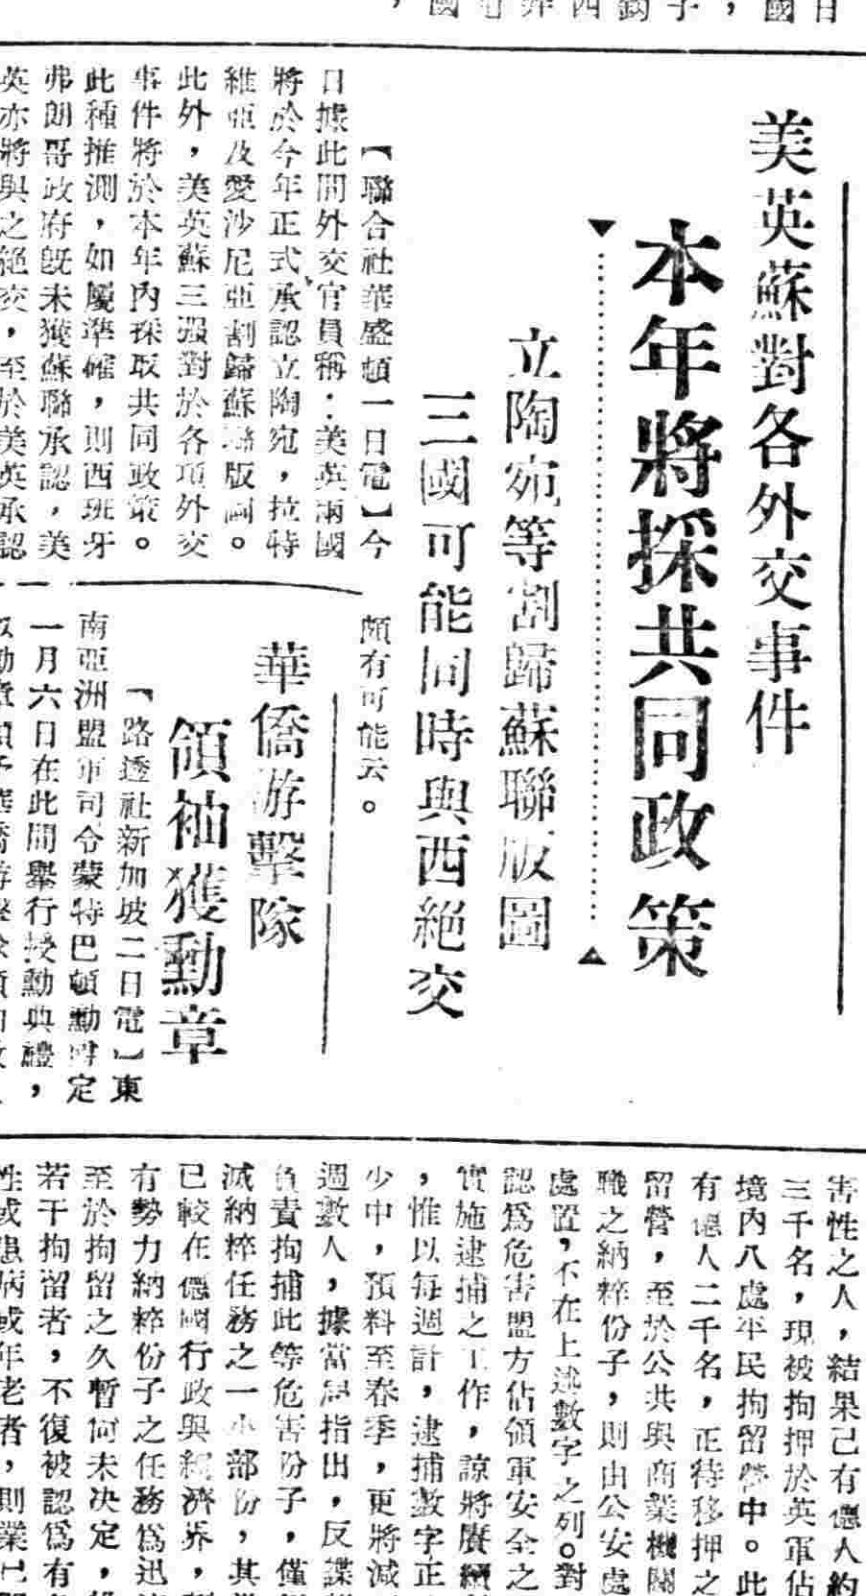 美英蘇對各外交事件
本年將採共同政策
立陶宛等割歸蘇聯版圖
三國可能同時與西絕交
【聯合社華盛頓一日電】今
日據此間外交官員稱：美英兩國
將於今年正式承認立陶宛，拉特
維亞及愛沙尼亞割歸蘇聯版圖。
此外，美英蘇三强對於各項外交
事件將於本年內採取共同政策。
此種推測，如屬準確，則西班牙
弗朗哥政府旣未獲蘇聯承認，美
英亦將與之絕交，至於美英承認
頗有可能云。
華僑游擊隊
領袖獲勳章
【路透社新加坡二日電】東
南亞洲盟軍司令蒙特巴頓勳爵定
一月六日在此間舉行授勳典禮，
害性之人，結果已有德人約
三千名，現被拘押於英軍佔
境內八處平民拘留營中。此
有德人二千名，正待移押之
留營，至於公共與商業機關
職之納粹份子，則由公安處
處置，不在上述數字之列。對
認爲危害盟方佔領軍安全之
實施逮捕之工作，諒將賡續
，惟以每週計，逮捕數字正
少中，預料至春季，更將減
週數人，據當局指出，反諜
負責拘捕此等危害份子，僅
滅納粹任務之一小部份，其
已較在德國行政與經濟界，
有勢力納粹份子之任務爲迅
至於拘留之久暫尙未决定，
若干拘留者，不復被認爲有
性或患病或年老者，則業已